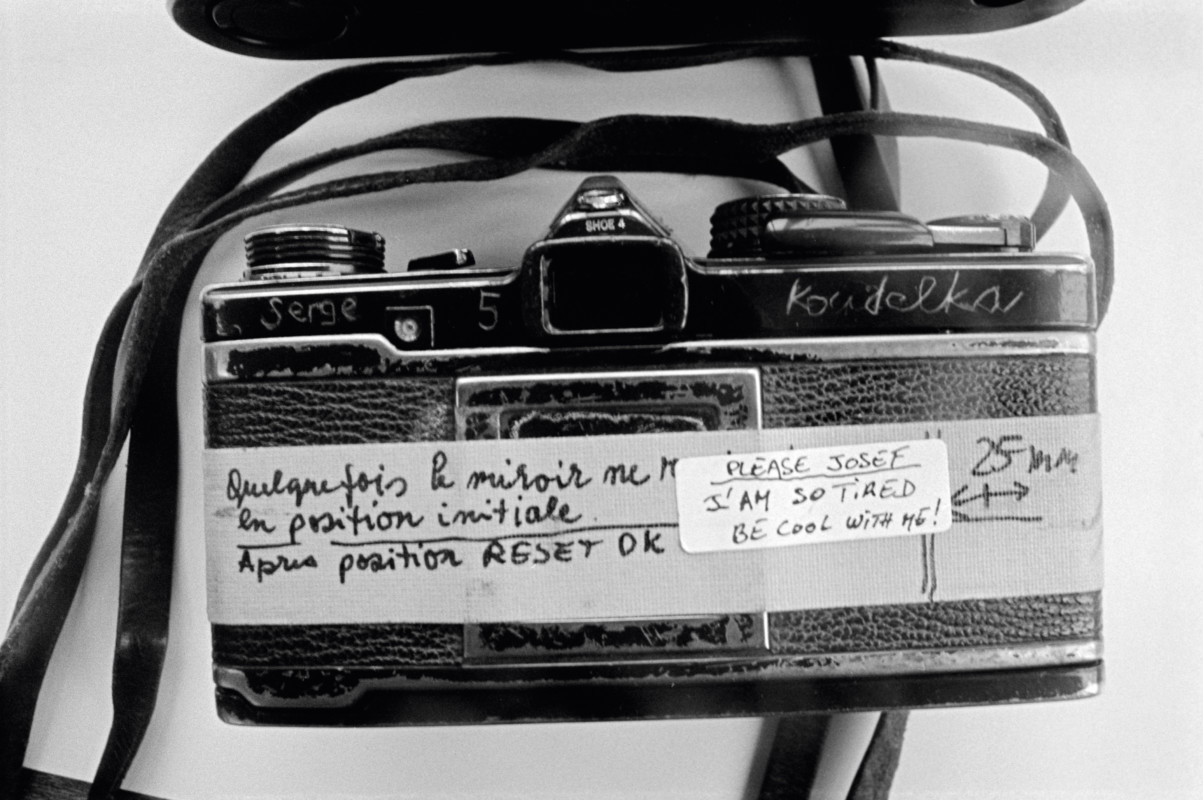 SHOE 4
Serge
5
Koudelka
Quelquefois le miroir ne
en position initiale
Après position RESET OK
PLEASE JOSEF
I'AM SO TIRED
BE COOL WITH ME!
25 mm